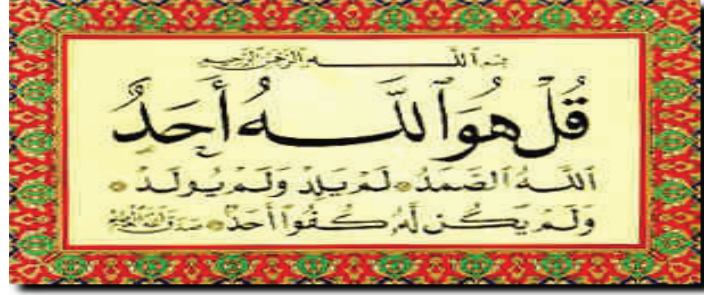 بِسْمِ ٱللَّهِ ٱلرَّحْمَٰنِ ٱلرَّحِيمِ
قُلْ هُوَ ٱللَّهُ أَحَدٌ
ٱللَّهُ ٱلصَّمَدُ لَمْ يَلِدْ وَلَمْ يُولَدْ
وَلَمْ يَكُن لَّهُ كُفُوًا أَحَدٌ صدق الله العظيم